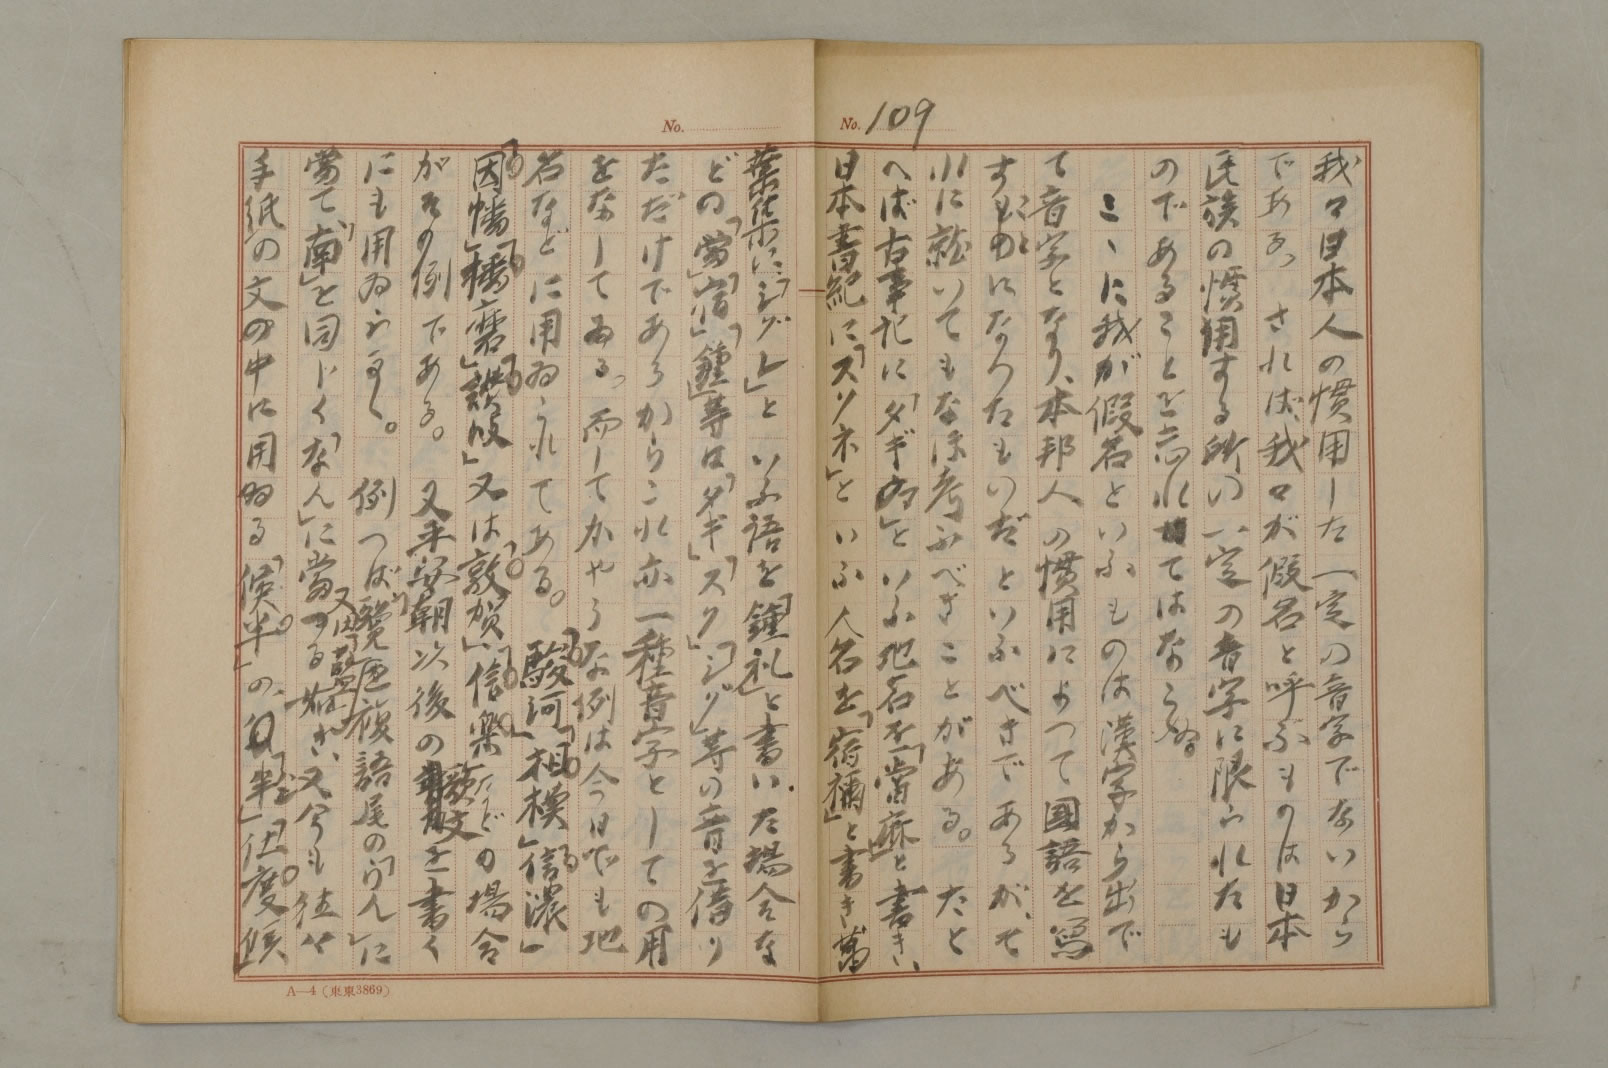 No. 109
我々日本人の慣用した一定の音字でないから
である。されば、我々が假名と呼ぶものは日本
民族の慣用する所の一定の音字に限られたも
のであることを忘れてはならぬ。
こゝに我が假名といふものは漢字から出で
て音字となり、本邦人の慣用によつて國語を寫
すことになつたものだといふべきであるが、そ
れに就いてもなほ考ふべきことがある。たと
へば古事記に「タギマ」といふ地名を「當麻」と書き、
日本書紀に「スクネ」といふ人名を「宿禰」と書き萬
葉集に「シグレ」といふ語を「鍾礼」と書いた場合な
どの「當」「宿」「鍾」等は「タギ」「スク」「シグ」等の音を借り
ただけであらからこれ亦一種音字としての用
をなしてゐる。而してかやうな例は今日でも地
名などに用ゐられてある。「駿河」「相模」「信濃」
「因幡」「播磨」「讃岐」又は「敦賀」「信樂」などの場合
がその例である。又平安朝以後の歌文を書く
にも用ゐらる。例へば「覽」を複語尾の「らん」に
當て、「南」と同じく「なん」に當つる如き、又今も往々
手紙の文の中に用ゐる「候半」の「半」「度候
No.
A—4(東東3869)